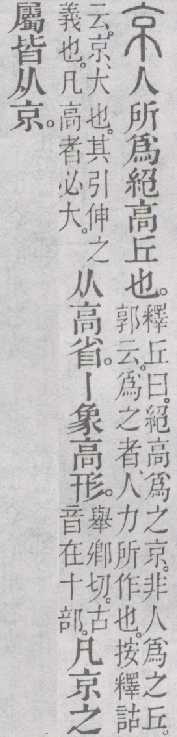 京人所爲絕高丘也。釋丘曰。絕高爲之京。非人爲之丘。郭云。爲之者人力所作也。按釋詁
云。京、大也。其引伸之義也。凡高者必大。从高省。丨象高形。舉鄉切。古音在十部。凡京之
屬皆从京。